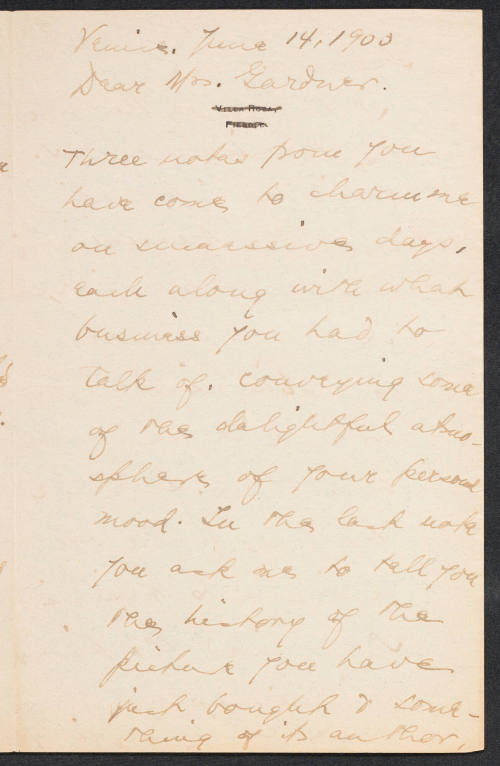 Venice. June 14, 1900
Dear Mrs. Gardner.
VILLA ROSA,
FIESOLE.
Three notes from you
have come to charm me
on successive days,
each along with what
business you had to
talk of, conveying some
of the delightful atmo-
sphere of your personal
mood. In the last note
you ask me to tell you
the history of the
picture you have
just bought & some-
thing of its author,